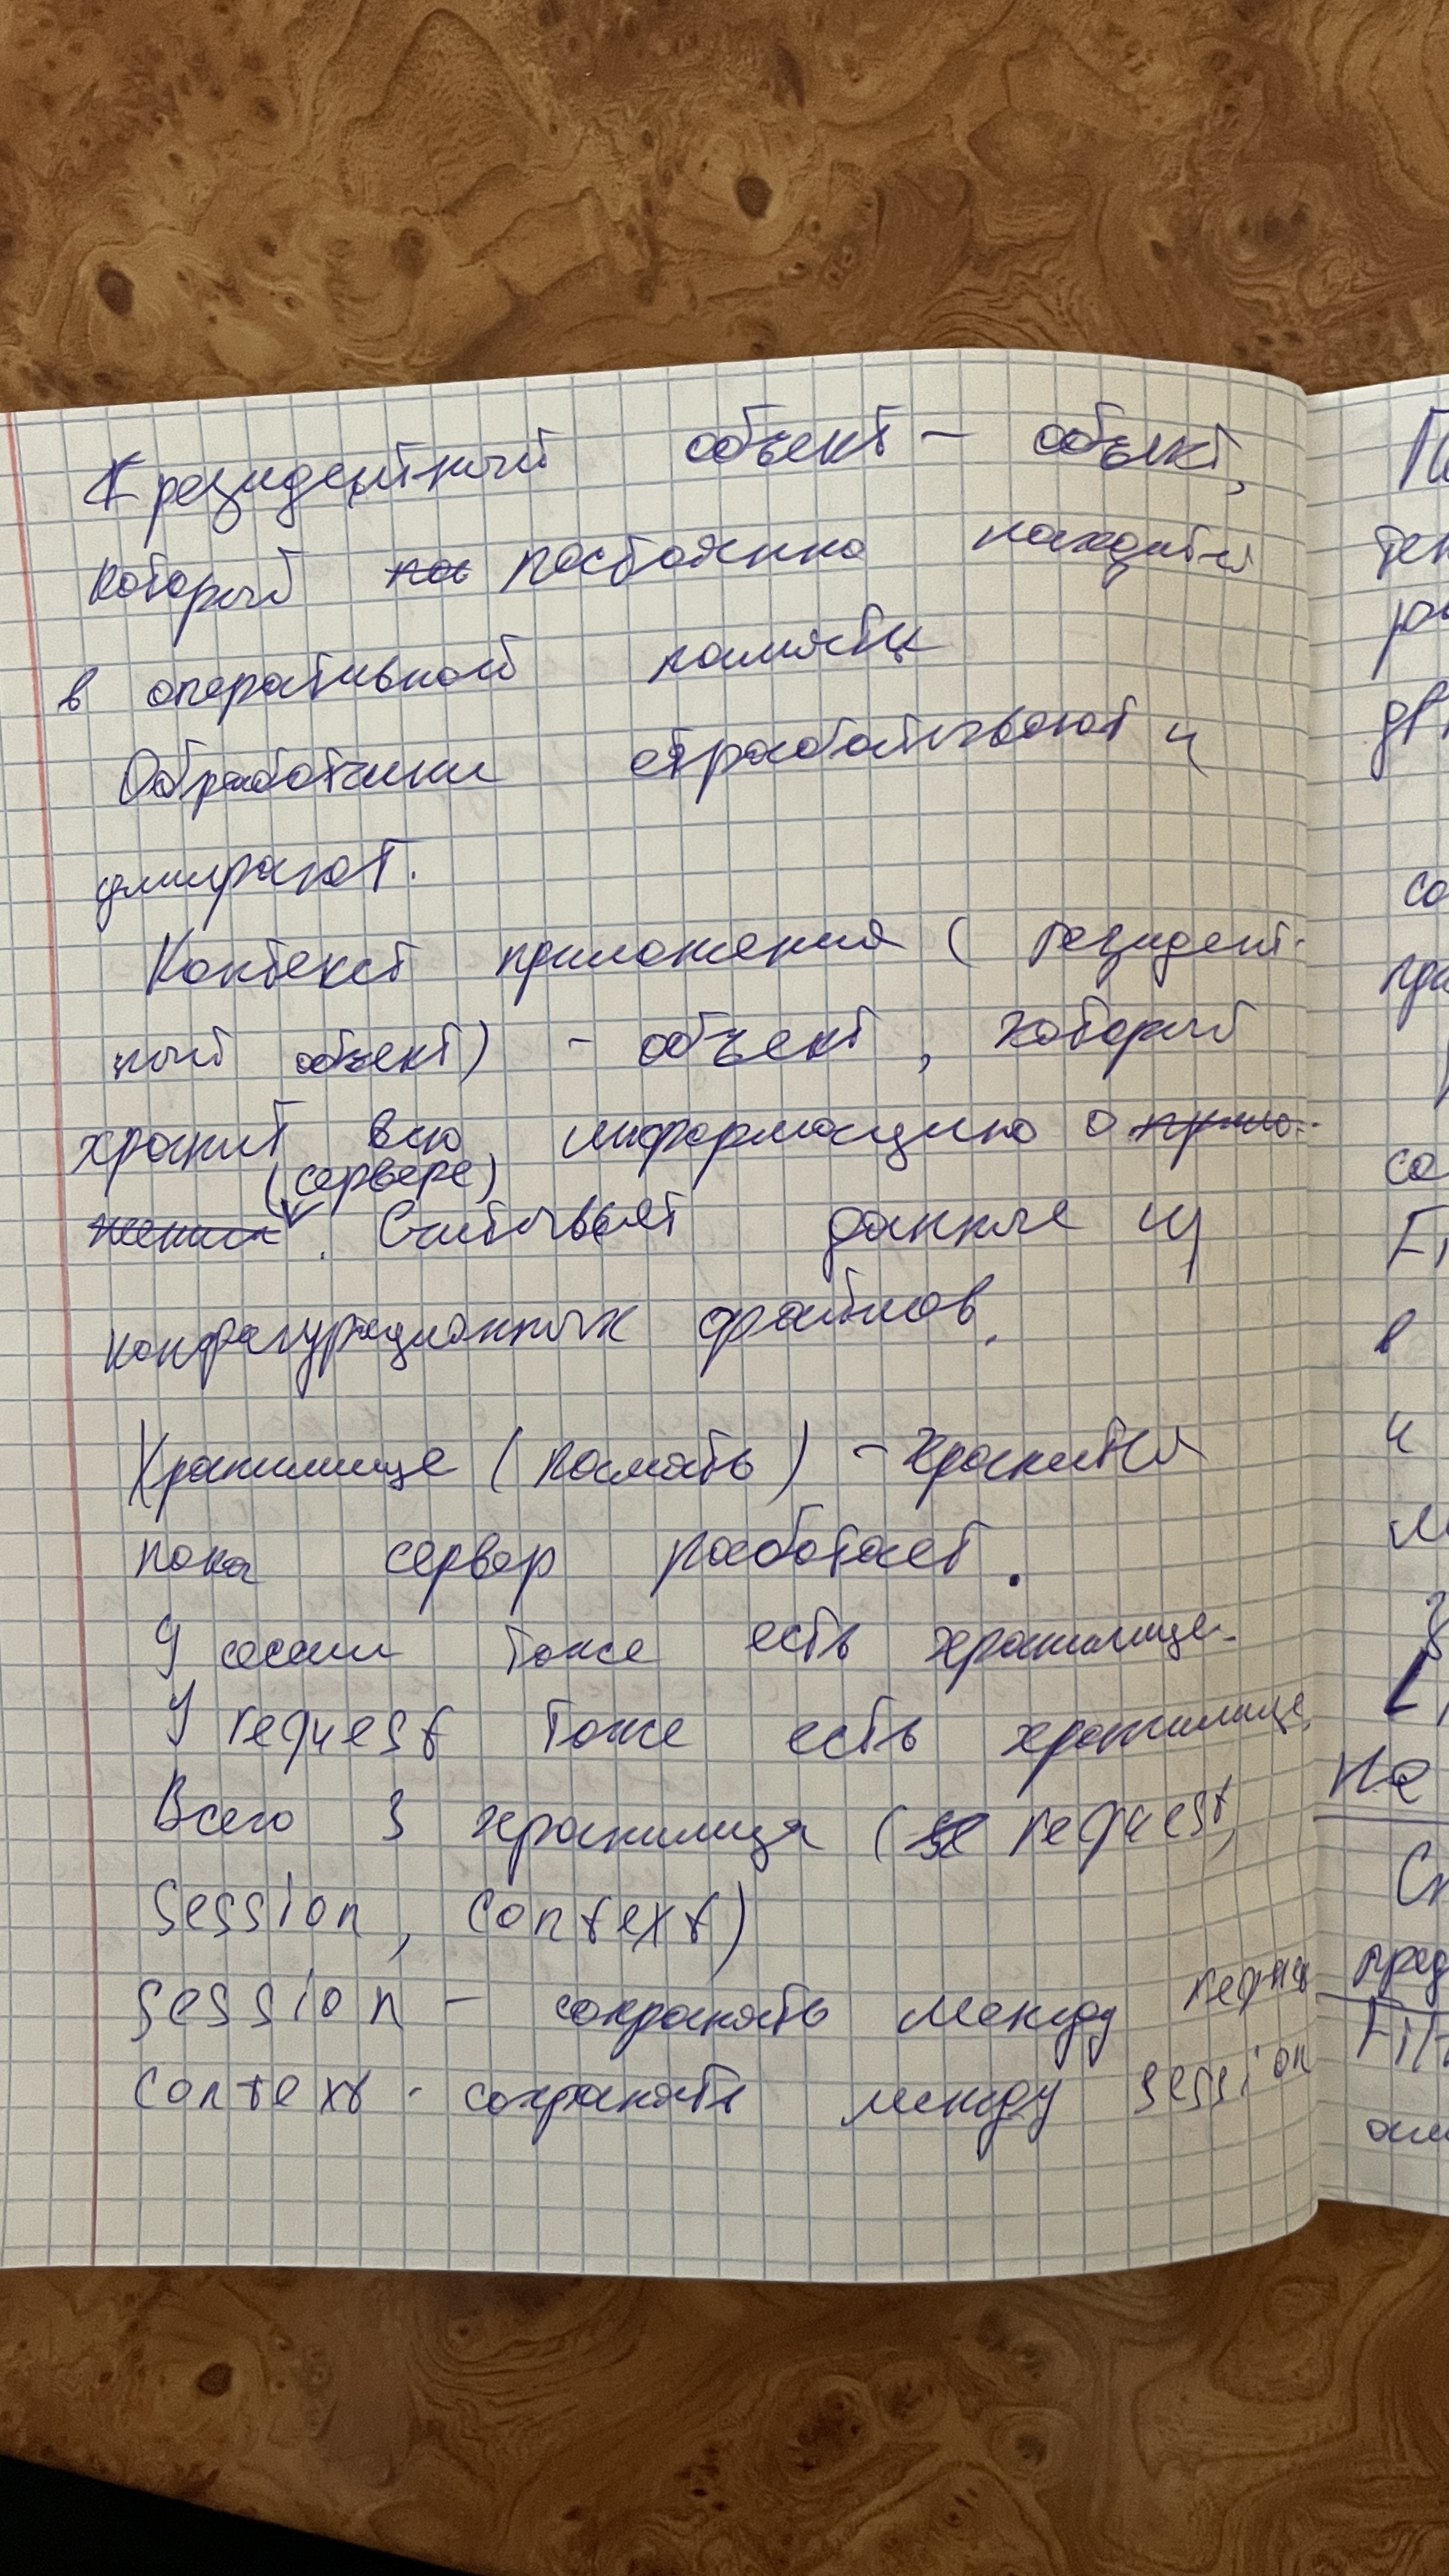 резидентный объект – объект,
который постоянно находится
в оперативной памяти
Обработчики отрабатывают и
умирают.
Контекст приложения ( резидент-
ный объект) - объект, который
хранит всю информацию о прило-
(сервере)
жении. Считывает данные из
конфигурационных файлов.
Хранилище (память) - хранится
пока сервер работает.
У сесии тоже есть хранилище.
У request тоже есть хранилище
Всего 3 хранилища ( request,
session, context)
session - сохранять между
context - сохранять между session